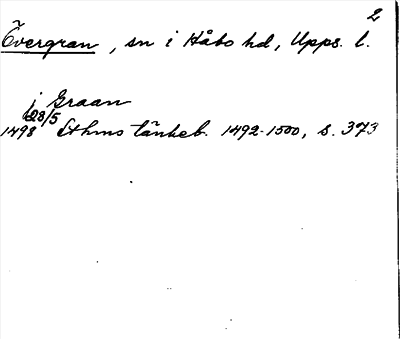 2
Övergran, sn i Håbo hd, Upps. l.
j Graan
1498 28/5 Sthms tänkeb. 1492-1500, s. 373